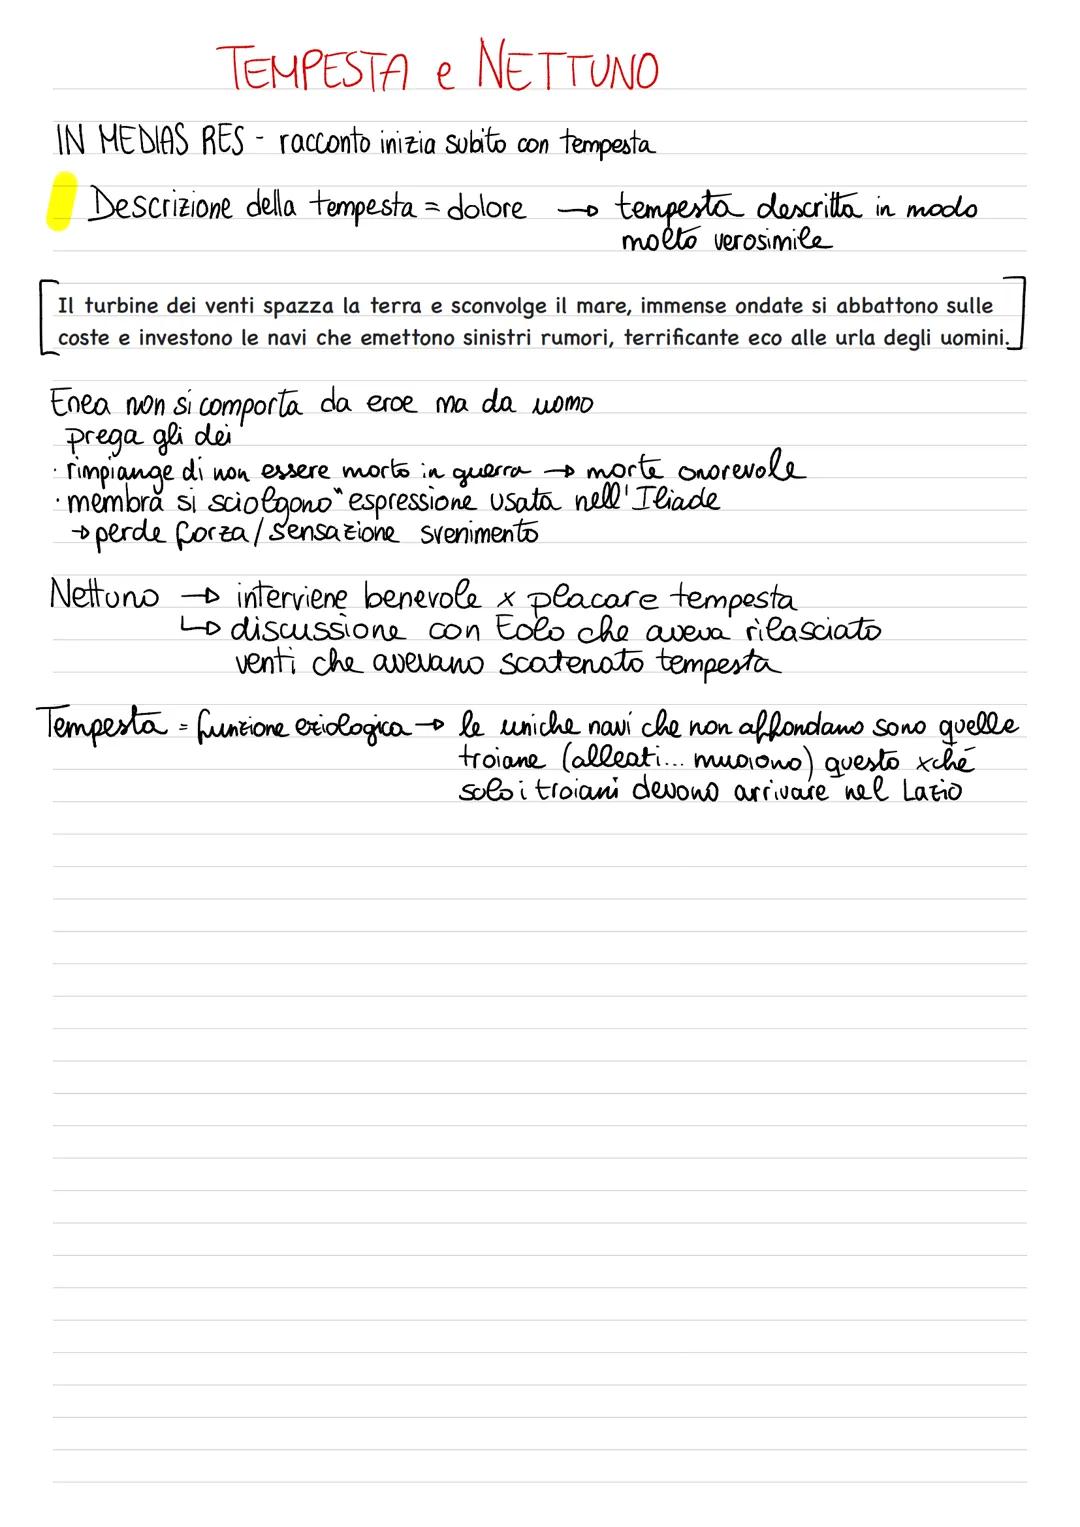 TEMPESTA e NETTUNO
IN MEDIAS RES - racconto inizia subito con tempesta
Descrizione della tempesta = dolore → tempesta descritta in modo
molto verosimile
Il turbine dei venti spazza la terra e sconvolge il mare, immense ondate si abbattono sulle
coste e investono le navi che emettono sinistri rumori, terrificante eco alle urla degli uomini.
Enea non si comporta da eroe ma da uomo
prega gli dei
· rimpiange di non essere morto in guerra → morte onorevole
· membra si sciolgono" espressione usata nell'Iliade
→ perde forza/sensazione svenimento
Nettuno → interviene benevole x placare tempesta
↳ discussione con Eolo che aveva rilasciato
venti che avevano scatenato tempesta
Tempesta = funzione eziologica → le uniche navi che non affondano sono quelle
troiane (alleati... muoiono) questo xché
solo i troiani devono arrivare nel Lazio